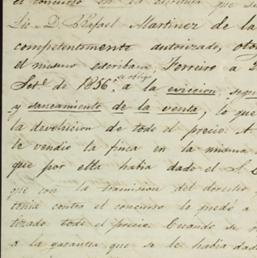 el concurso
Lic. D. Rafael Martinez de la
competentemente autorizado, oto
el mismo escribano, Ferreiro a
Set.e de 1856, se obligo a la eviccion, segu
y saneamiento de la venta; lo que
la devolucion de todo el precio. A
le vendio la finca en la misma
que por ella habia dado el S.
que con la trasmision del derecho
tenia contra el concurso le pedi a
tizado todo el precio. Cuando se
a la garantia que se le habia dad